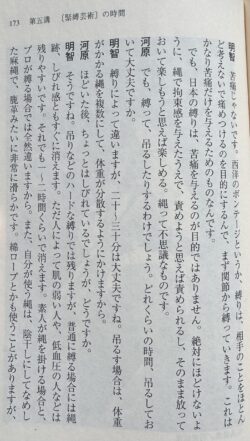 173　第五講　〔緊縛芸術〕の時間
明智　苦痛じゃないです。西洋のボンデージというか、縛りは、相手のことをほとん
ど考えないで痛めつけるのを目的にするんで、まず関節から縛っていきます。これは
かなり苦痛だけを与えるためのものなんです。
　でも、日本の縛りは、苦痛を与えるのが目的ではありません。絶対にほどけないよ
うに、縄で拘束感を与えたうえで、責めようと思えば責められるし、そのまま放って
おいて楽しもうと思えば楽しめる。縄って不思議なものです。
河原　でも、縛って、吊るしたりするわけでしょう。どれくらいの時間、吊るしてお
いて大丈夫ですか。
明智　縛りによって違いますが、二十〜三十分は大丈夫ですね。吊るす場合は、体重
がかかる縄を複数にして、体重が分散するようにかけますから。
河原　ほどいた後、ちょっとはしびれているでしょうが、どうですか。
明智　そうですね。吊りなどのハードな縛りでは残りますが、普通に縛る場合には縄
跡、しびれ感ともすぐに消えます。ただ人によって肌の弱い人や、低血圧の人などは
残りやすい。でもそれでも一、二時間くらいで消えます。素人が縄を掛ける場合と
プロが縛る場合では全然違いますから。また、自分が使う縄は、陰干しにしてなめし
た麻縄で、鹿革みたいに非常に滑らかです。綿ロープとかも使うことがありますが、